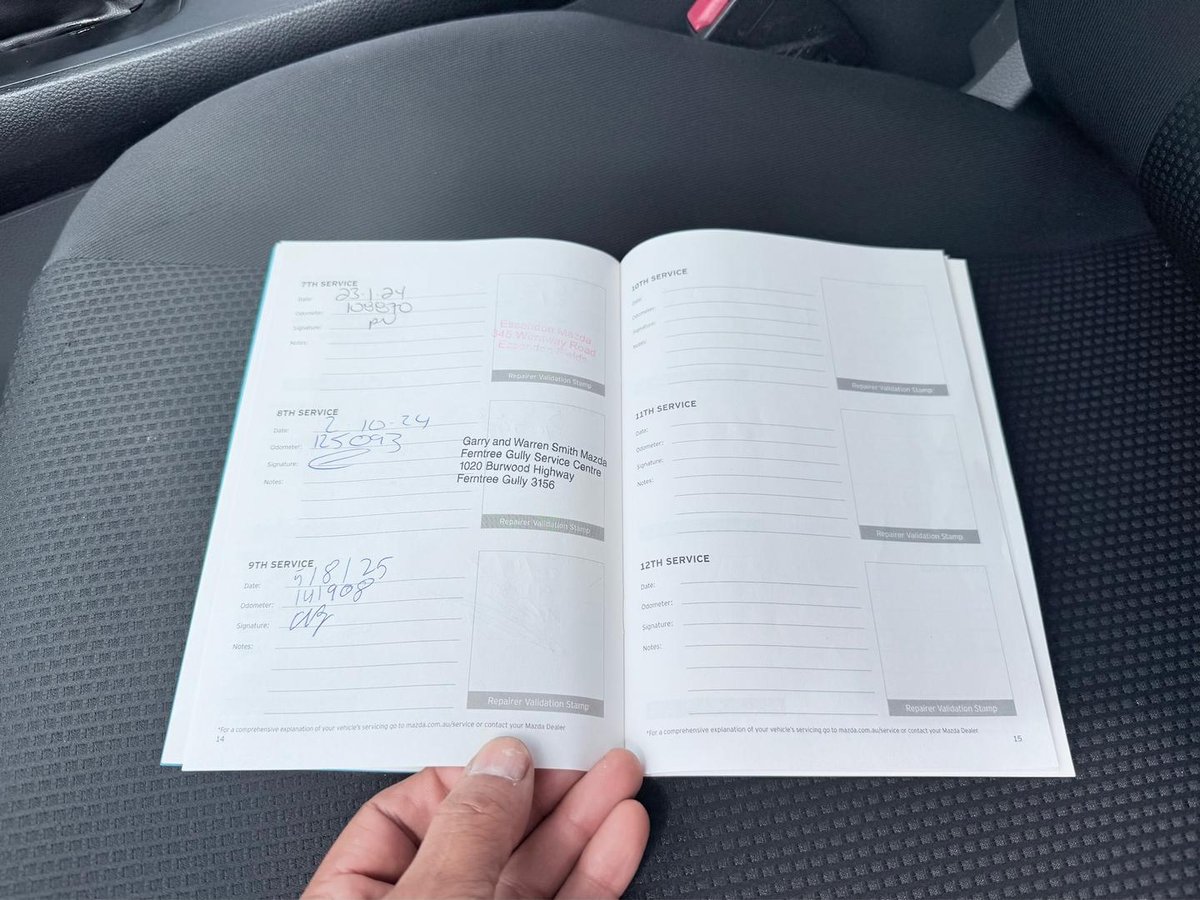 7TH SERVICE
Date: 23.1.24
Odometer: 108830
Signature:
Notes:
Essendon Mazda
345 Wirraway Road
Essendon Fields
Repairer Validation Stamp
8TH SERVICE
Date: 2 10-24
Odometer: 125093
Signature:
Notes:
Garry and Warren Smith Mazda
Ferntree Gully Service Centre
1020 Burwood Highway
Ferntree Gully 3156
Repairer Validation Stamp
9TH SERVICE
Date: 5/8/25
Odometer: 141908
Signature:
Notes:
Repairer Validation Stamp
*For a comprehensive explanation of your vehicle's servicing go to mazda.com.au/service or contact your Mazda Dealer
14
10TH SERVICE
Date:
Odometer:
Signature:
Notes:
Repairer Validation Stamp
11TH SERVICE
Date:
Odometer:
Signature:
Notes:
Repairer Validation Stamp
12TH SERVICE
Date:
Odometer:
Signature:
Notes:
Repairer Validation Stamp
*For a comprehensive explanation of your vehicle's servicing go to mazda.com.au/service or contact your Mazda Dealer
15